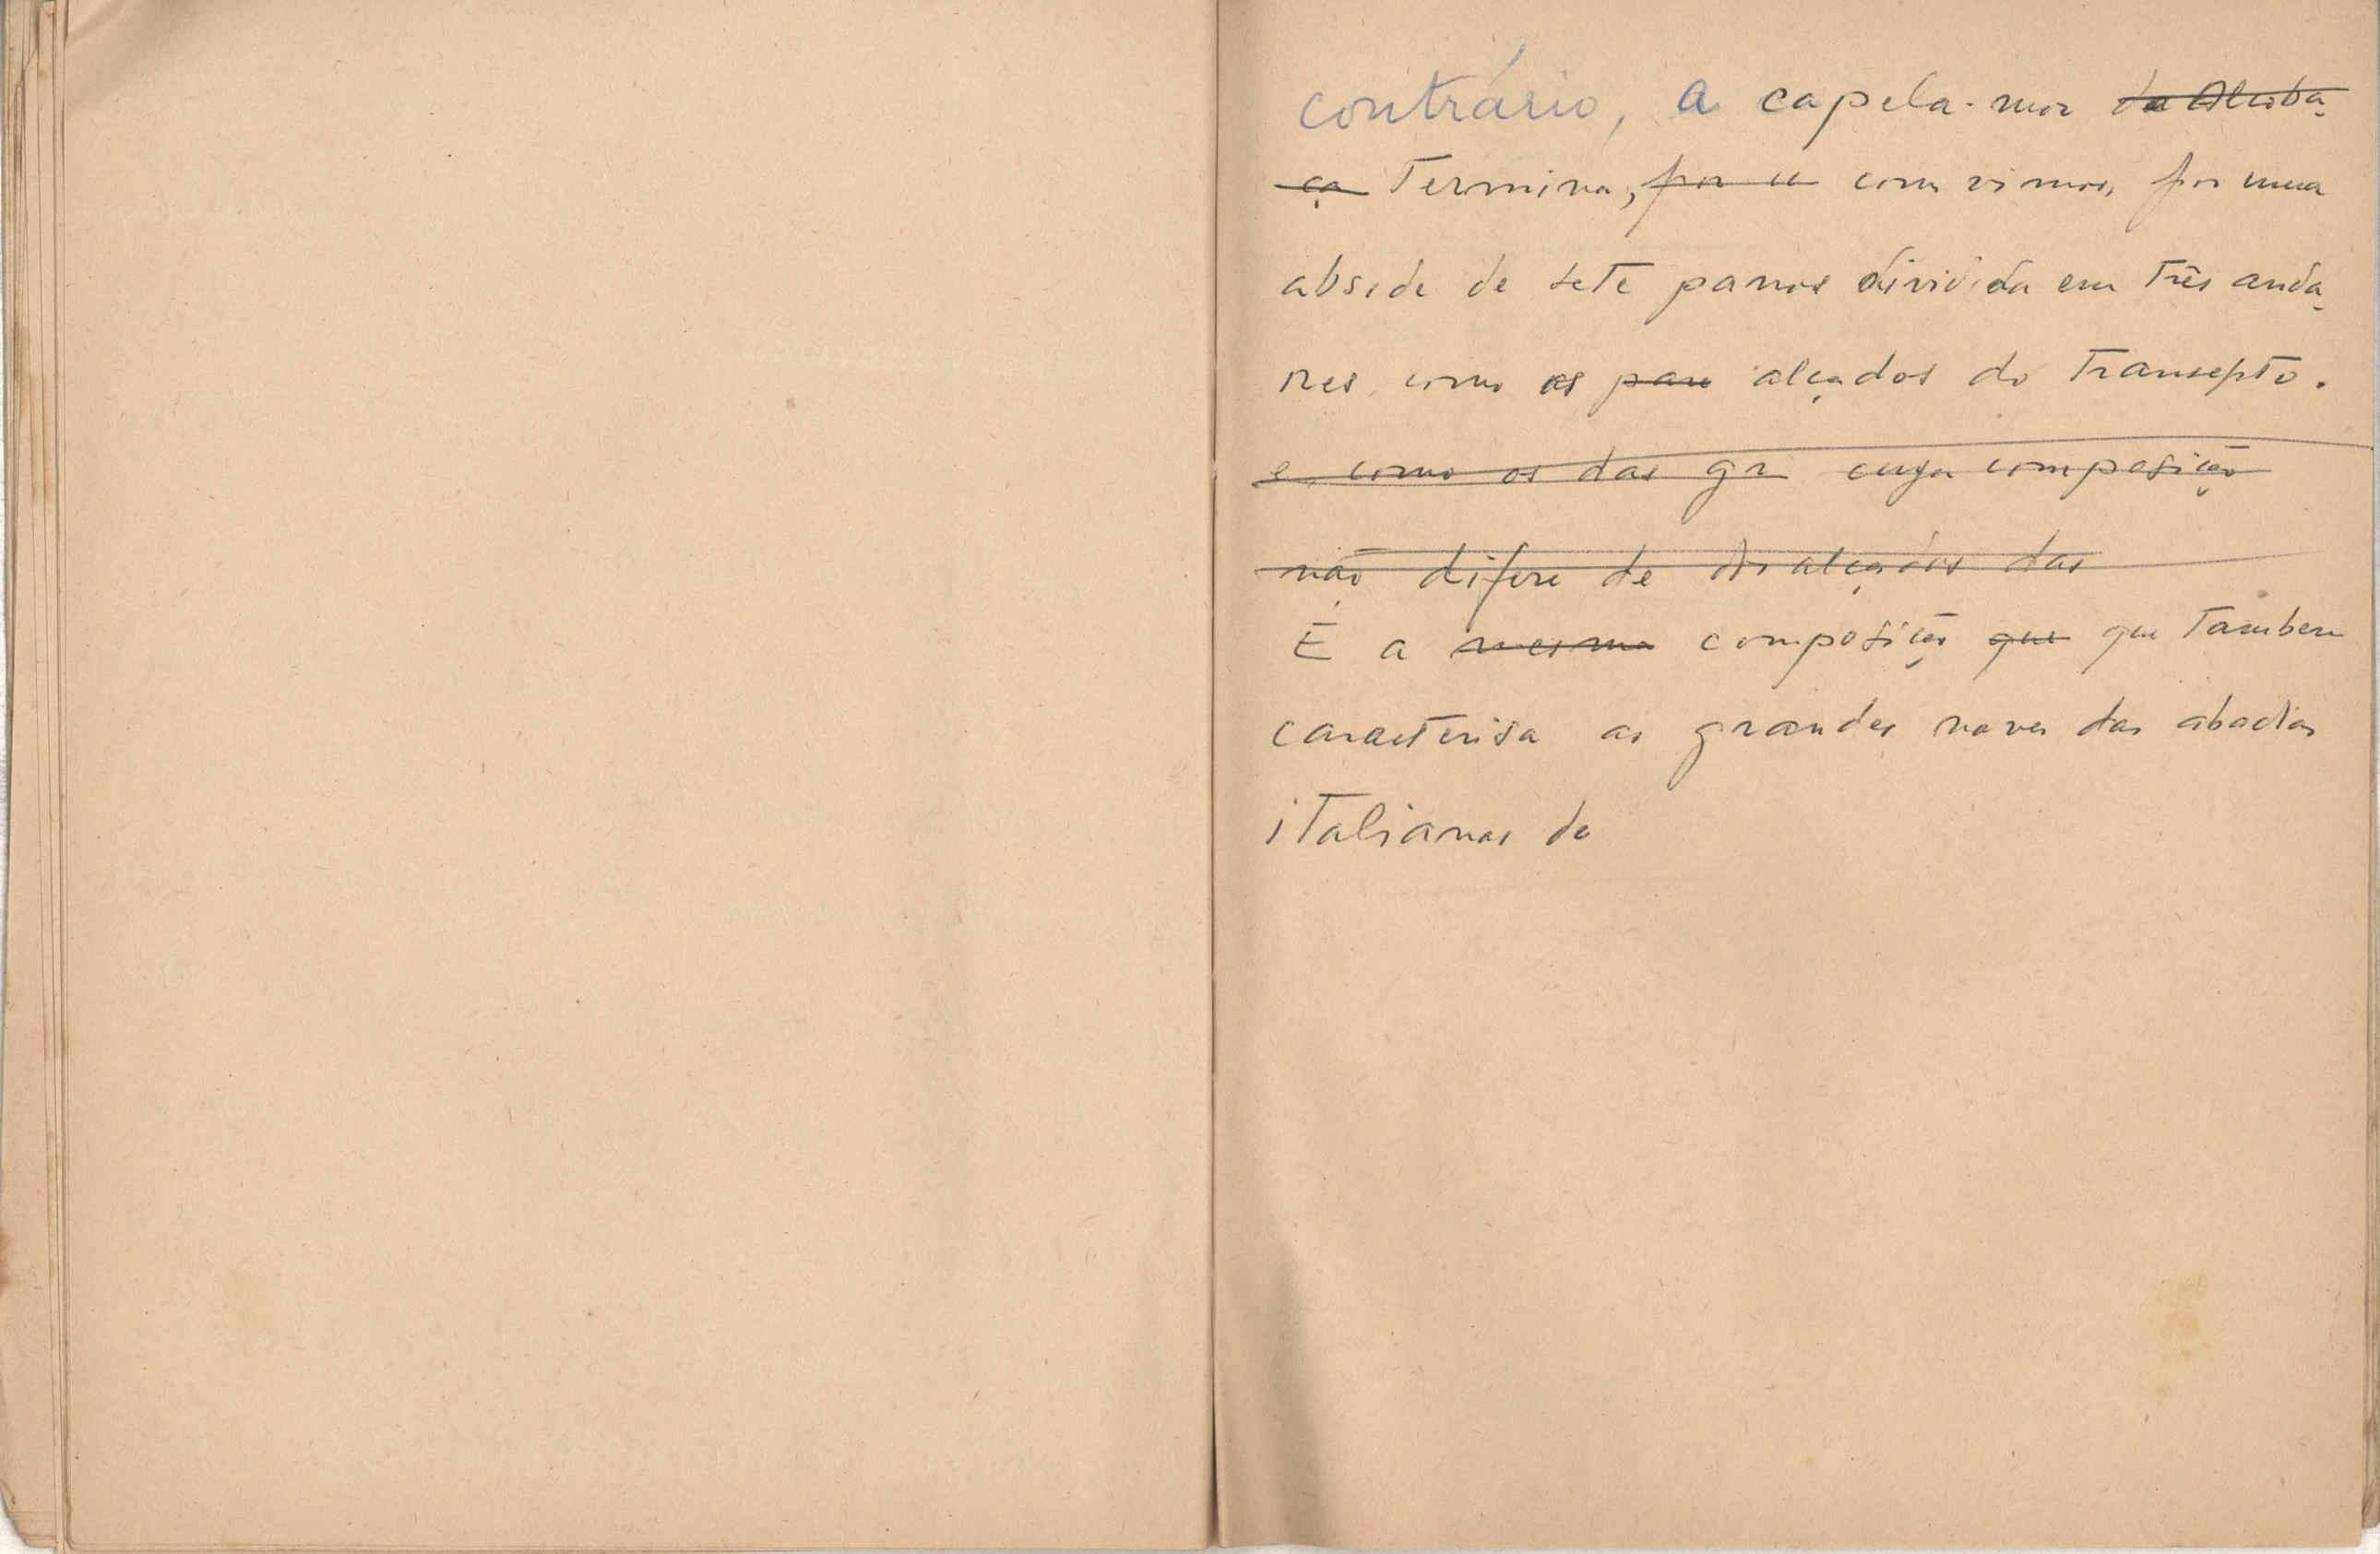 contrário, a capela-mor da Alcoba-
ça Termina, por u como vimos, por uma
abside de sete panos dividida em Três anda-
res, como os pan alçados do Transepto.
e, como os das gr cuja composição
não difere de dos alçados das
É a mesma composição que que Tambem
caracterisa as grandes naves das abadias
iTalianas de